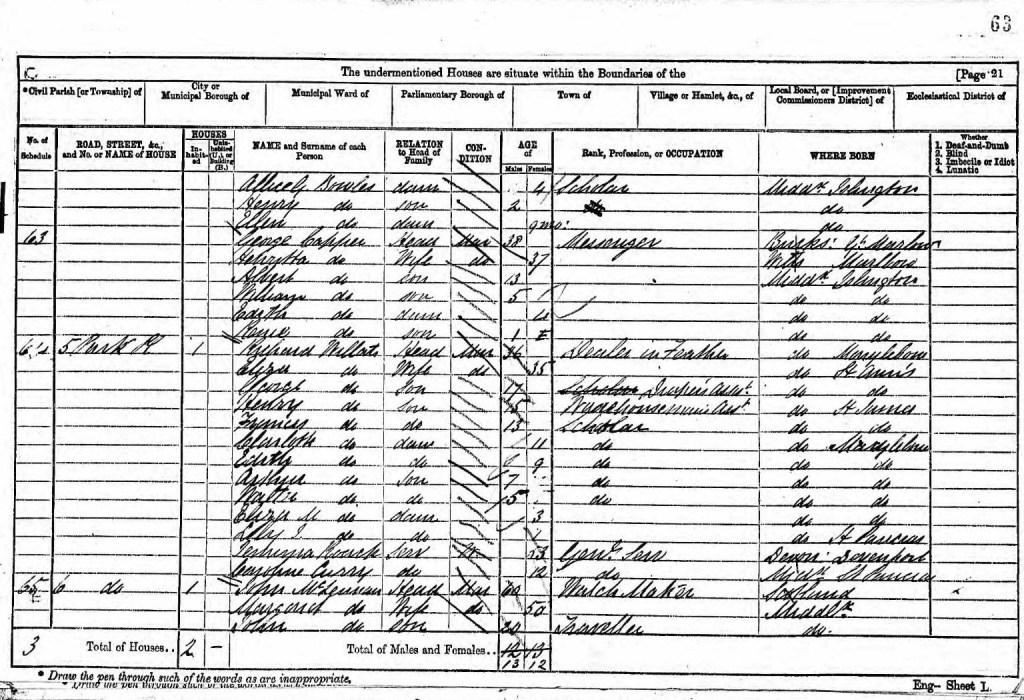 63
C
The undermentioned Houses are situate within the Boundaries of the [Page 21
*Civil Parish [or Township] of City or Municipal Borough of Municipal Ward of Parliamentary Borough of Town of Village or Hamlet, &c., of Local Board, or [Improvement Commissioners District] of Ecclesiastical District of
No. of Schedule ROAD, STREET, &c., and No. or NAME of HOUSE HOUSES In-habit-ed Unin-habited (U.), or Building (B.) NAME and Surname of each Person RELATION to Head of Family CON-DITION AGE of Males Females Rank, Profession, or OCCUPATION WHERE BORN Whether 1. Deaf-and-Dumb 2. Blind 3. Imbecile or Idiot 4. Lunatic
Bowles daur 4 Scholar Middx Islington
Henry do son 2 do
Ellen do daur 9 mo: do
63 George Capper Head Mar 38 Messenger Bucks: Gt Marlow
Henrietta do Wife do 37 Wilts Marlboro
Albert do son 13 Middx Islington
William do son 5 do do
Edith do daur 4 do do
do son 1 do do
64 5 Park 1 Richard Willats Head Mar 36 Dealer in Feather do Marylebone
Eliza do Wife do 35 do St Ann's
George do Son 17 Scholar Draper's Asst do do
Henry do son 15 Warehouseman's Asst do St James
Francis do do 13 Scholar do do
Charlotte do daur 11 do do Marylebone
Edith do do 9 do do do
Arthur do son 7 do do do
Walter do do 5 do do do
Eliza M do daur 3 do do
Lily do do 1 do St Pancras
Jemima Roach Serv 23 Genl Serv Devon: Devonport
Caroline Curry do 12 do Middx St Pancras
65 6 do 1 John McLennan Head Mar 60 Watch Maker Scotland
Margaret do Wife do 50 Middlx
John do son 20 Traveller do.
3 Total of Houses.. 2 – Total of Males and Females.. 12 13
13 12
* Draw the pen through such of the words as are inappropriate.
Eng— Sheet L.